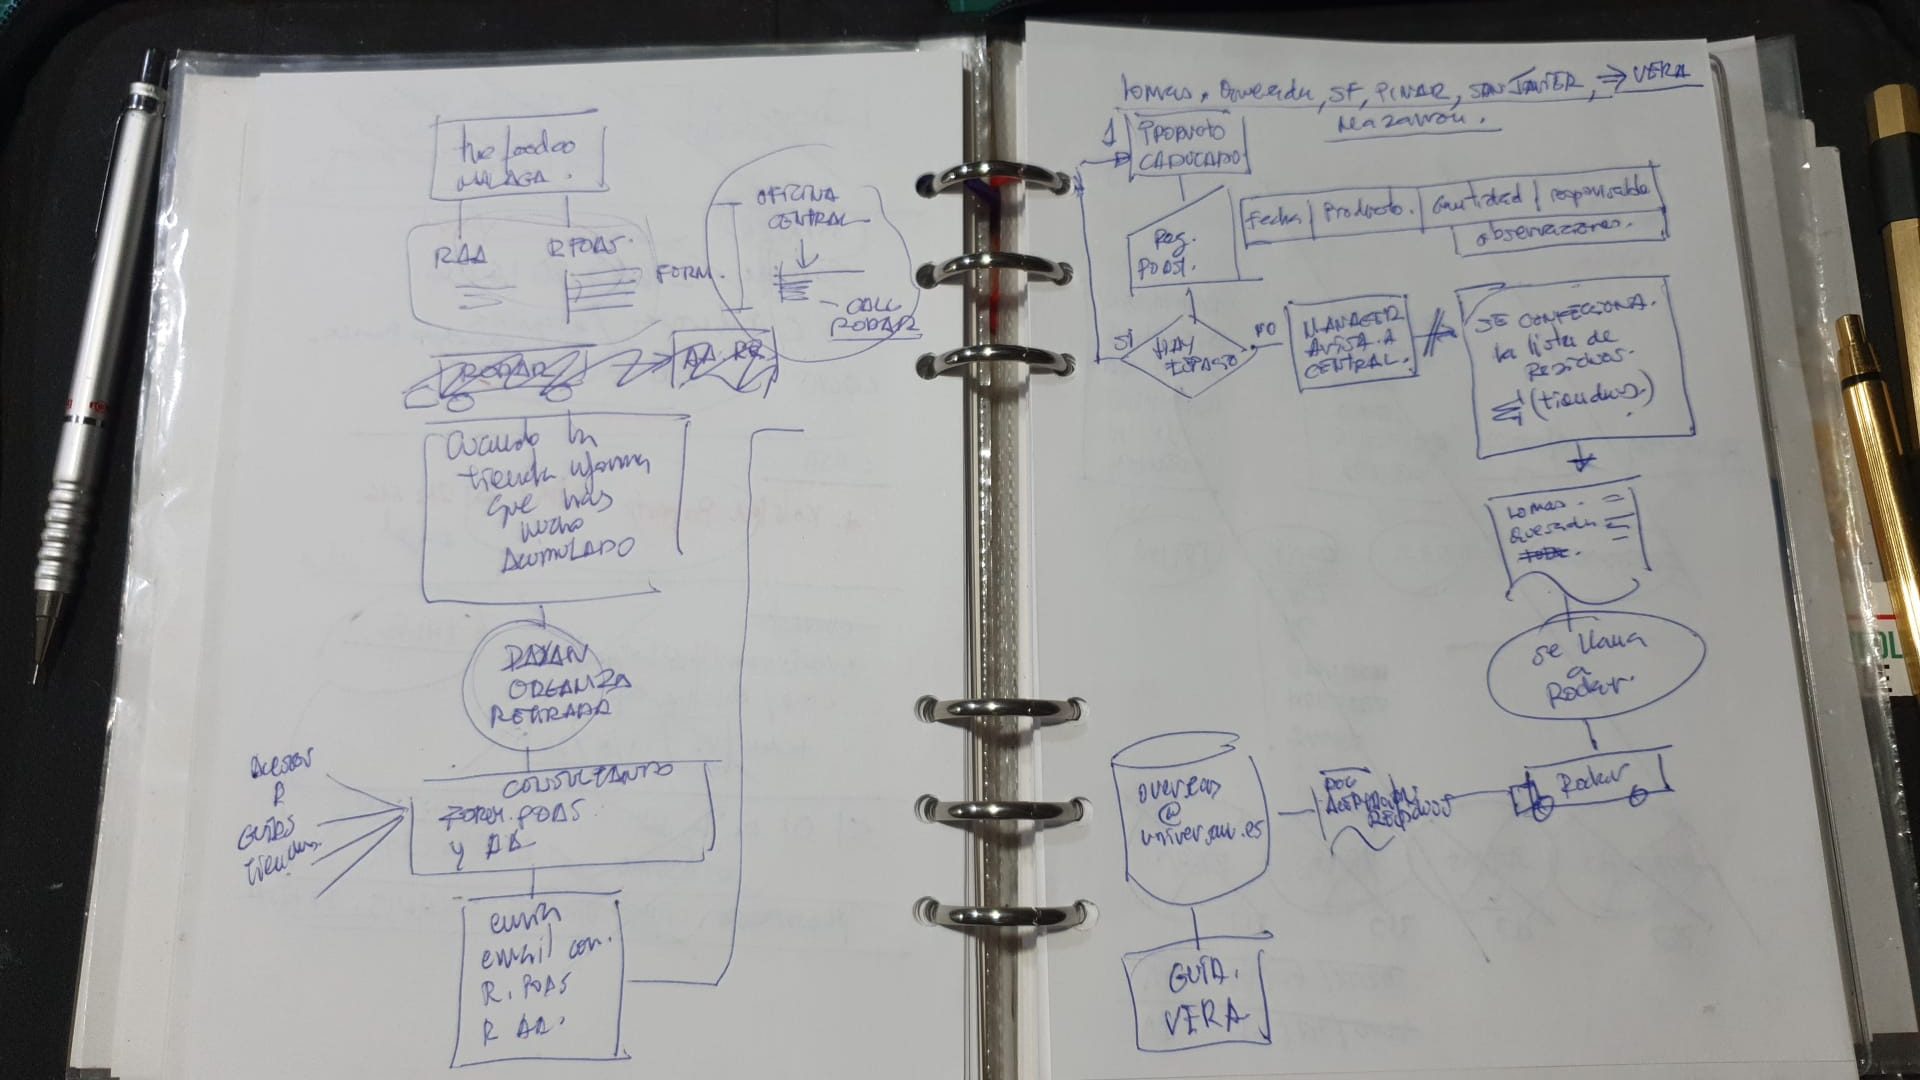 MALAGA.
RAA
R POAS.
FORM.
OFICINA
CENTRAL
CALL
RODAR
RODAR
AA.RR
Cuando la
tienda informa
que hay
mucho
ACUMULADO
DAYAN
ORGANIZA
RETIRADA
CONSULTANDO
FORM. POAS
Y AA
Acceso
R
GUÍAS
tiendas
envía
email con.
R. POAS
R AA.
Lomas, Quesada, SF, PINAR, SAN JAVIER, ⇒ VERA
Mazarrón.
1
PRODUCTO
CADUCADO
Fecha | Producto. | Cantidad | responsable
observaciones.
Reg.
POAS.
SÍ
HAY
ESPACIO
NO
MANAGER
AVISA A
CENTRAL.
SE CONFECCIONA.
la lista de
Residuos.
(tiendas.)
Lomas.
Quesada
se llama
a
Rodar.
Rodar
DOC
Residuos
@
GUÍA.
VERA